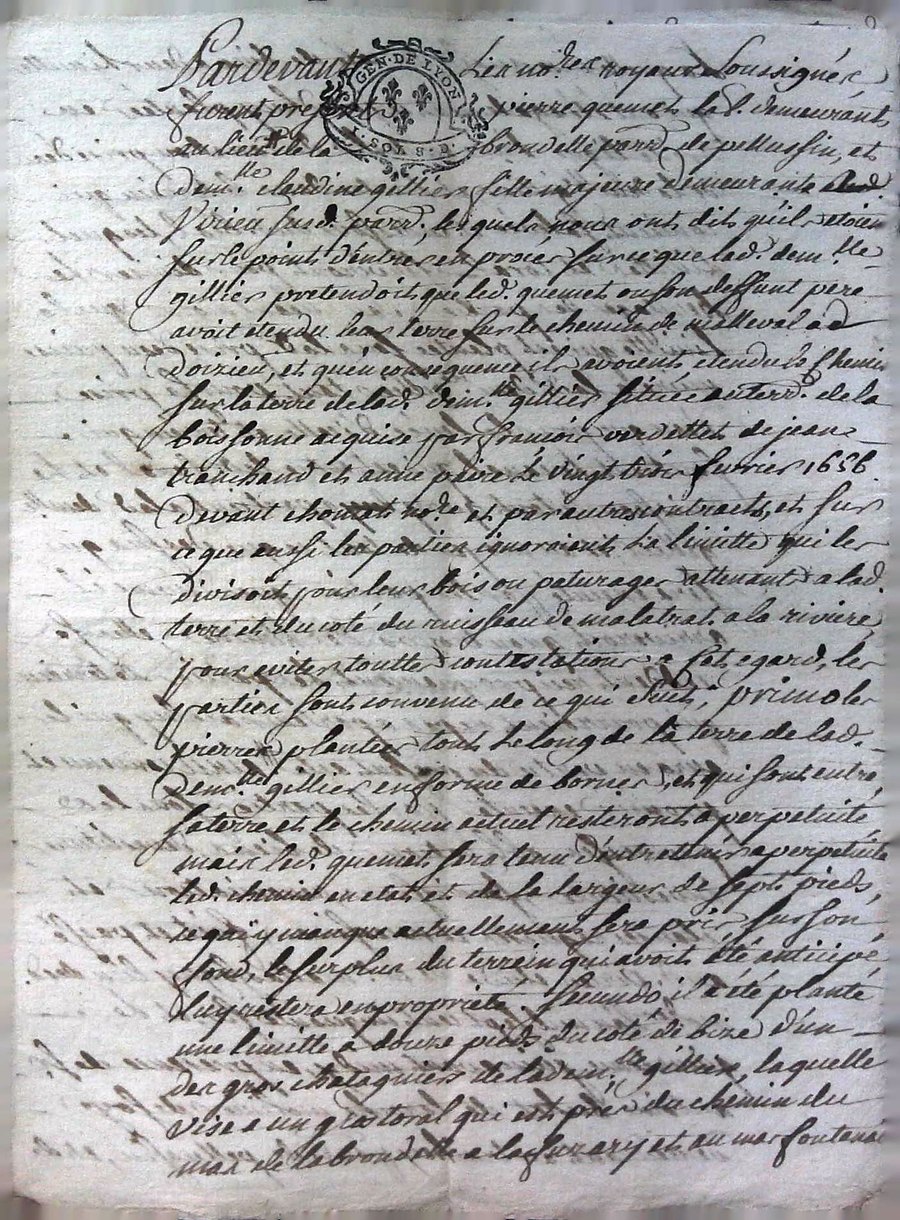 Pardevant Les no.res royaux Soussignés
GEN. DE LYON
SOLS
furent presents pierre quemet le S. demeurant
au lieu de la brondelle parr. de pellussin, et
dem.lle claudine gillier fille majeure demeurante
Virieu susd. parr., lesquels nous ont dit qu'ils etoient
sur le point d'entrer en procés sur ce que lad. dem.lle
gillier pretendoit que led. quemet ou son deffunt pere
avoit etendu leur terre sur le chemin de malleval a
doizieu, et qu'en consequence ils avoient etendu le Chemin
sur la terre de lad. dem.lle gillier située au terr. de la
boissonne acquise par francois verdellet de jean
tranchand et anne paire le vingt trois fevrier 1656
devant chomet no.re et par autres contracts, et sur
ce que aussi les parties ignoroient la limitte qui les
divisoit pour leurs bois ou paturages attenant a lad.
terre et du coté du ruisseau de malatrat a la riviere,
pour eviter touttes contestations a cet egard, les
parties sont convenu de ce qui suit, primo les
pierres plantées tout le long de la terre de lad.
dem.lle gillier en forme de bornes, et qui sont entre
sa terre et le chemin actuel resteront a perpetuité
mais led. quemet sera tenu d'entretenir a perpetuité
led. chemin en etat et de la largeur de sept pieds,
ce qui y manque actuellement sera pris sur son
fond, le surplus du terrein qui avoit été anticipé
luy restera en proprieté Secundo, il a été planté
une limitte a douze pieds du coté de bize d'un
des gros chataguiers de lad. dem.lle gillier, laquelle
vise a un gros toral qui est prés du chemin du
mas de la brondelle a la et au mas fontenai